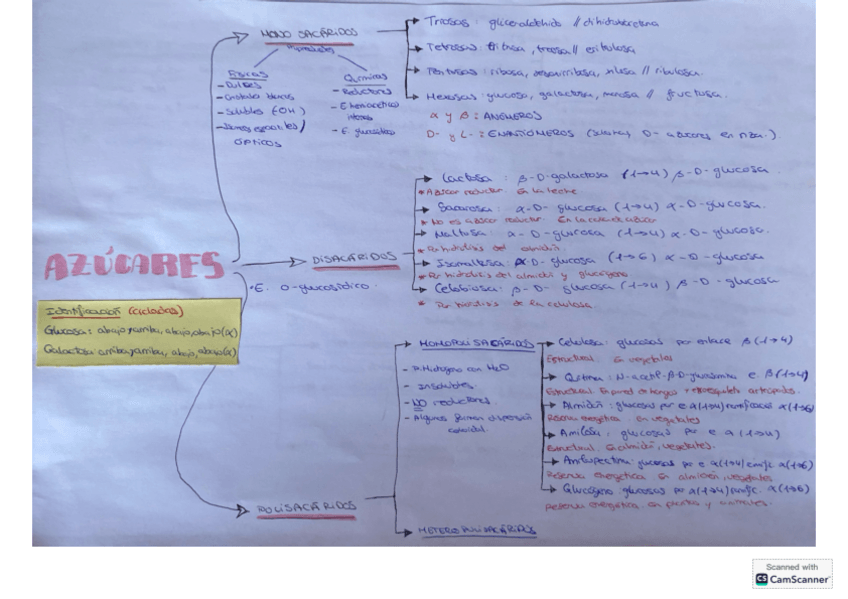 MONOSACÁRIDOS
Propiedades
Físicas
- Dulces
- Cristales blancos
- Solubles (OH)
- Isómeros espaciales/
ÓPTICOS
Químicas
- Reductores
- E. hemiacetálico
interno
- E. glucosídico
Triosas: gliceraldehído // dihidroxicetona
Tetrosas: Eritrosa, treosa // eritrulosa
Pentosas: ribosa, desoxirribosa, xilosa // ribulosa.
Hexosas: glucosa, galactosa, manosa // fructosa.
α y β: ANÓMEROS
D- y L-: ENANTIÓMEROS D- azúcares en nza.)
AZÚCARES
Identificación (cicladas)
Glucosa: abajo, arriba, abajo, abajo (α)
Galactosa: arriba, arriba, abajo, abajo (α)
DISACÁRIDOS
• E. O-glucosídico.
Lactosa: β-D-galactosa (1→4) β-D-glucosa.
* Azúcar reductor. En la leche
Sacarosa: α-D- glucosa (1→4) α-D-glucosa.
* No es azúcar reductor. En la caña de azúcar
Maltosa: α-D- glucosa (1→4) α-D-glucosa.
* Por hidrólisis del almidón
Isomaltosa: α-D- glucosa (1→6) α-D-glucosa
* Por hidrólisis del almidón y glucógeno
Celobiosa: β-D- glucosa (1→4) β-D- glucosa
* Por hidrólisis de la celulosa
POLISACÁRIDOS
HOMOPOLISACÁRIDOS
- P. Hidrógeno con H2O
- Insolubles.
- NO reductores
- Algunos forman dispersión
coloidal.
Celulosa: glucosas por enlace β(1→4)
Estructural. En vegetales
Quitina: N-acetil-β-D-glucosamina e. β(1→4)
Estructural. En pared en hongos + exoesqueleto artrópodos.
Almidón: glucosas por e α(1→4) ramificaciones α(1→6)
Reserva energética. en vegetales
Amilosa: glucosas por e α(1→4)
Estructural. En almidón, vegetales.
Amilopectina: glucosas por e α(1→4) ramific α(1→6)
Reserva energética. En almidón, vegetales
Glucógeno: glucosas por α(1→4) ramific. α(1→6)
Reserva energética. en y animales.
HETEROPOLISACÁRIDOS
Scanned with
CS CamScanner